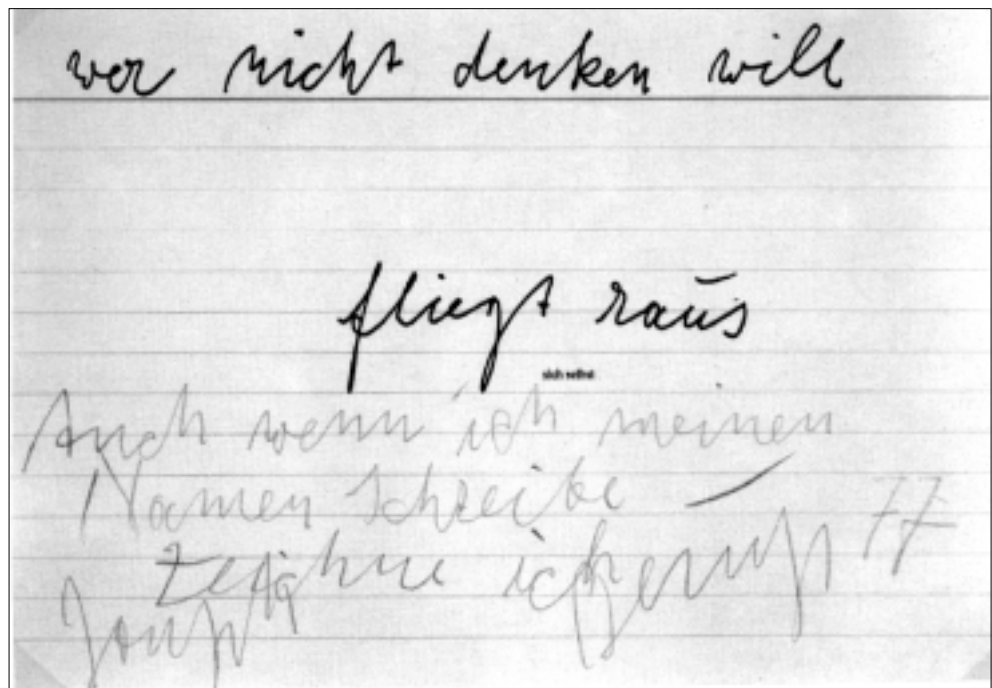 wer nicht denken will
fliegt raus
sich selbst
Auch wenn ich meinen
Namen schreibe — 77
zeichne ich
Joseph Beuys